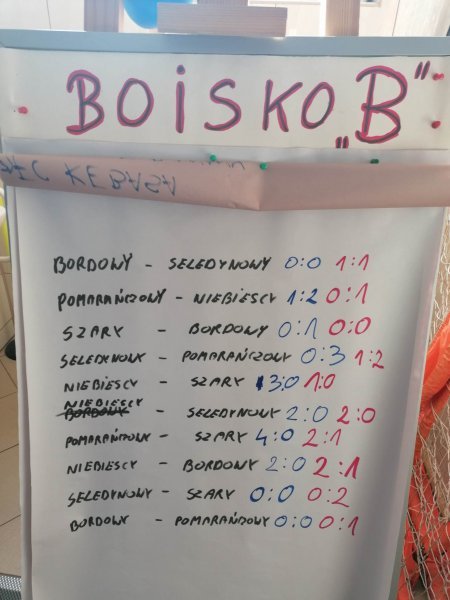 BOISKO „B”
BORDOWY - SELEDYNOWY 0:0 1:1
POMARAŃCZOWY - NIEBIESCY 1:2 0:1
SZARY - BORDOWY 0:1 0:0
SELEDYNOWY - POMARAŃCZOWY 0:3 1:2
NIEBIESCY - SZARY 3:0 1:0
NIEBIESCY
BORDOWY - SELEDYNOWY 2:0 2:0
POMARAŃCZOWY - SZARY 4:0 2:1
NIEBIESCY - BORDOWY 2:0 2:1
SELEDYNOWY - SZARY 0:0 0:2
BORDOWY - POMARAŃDOWY 0:0 0:1